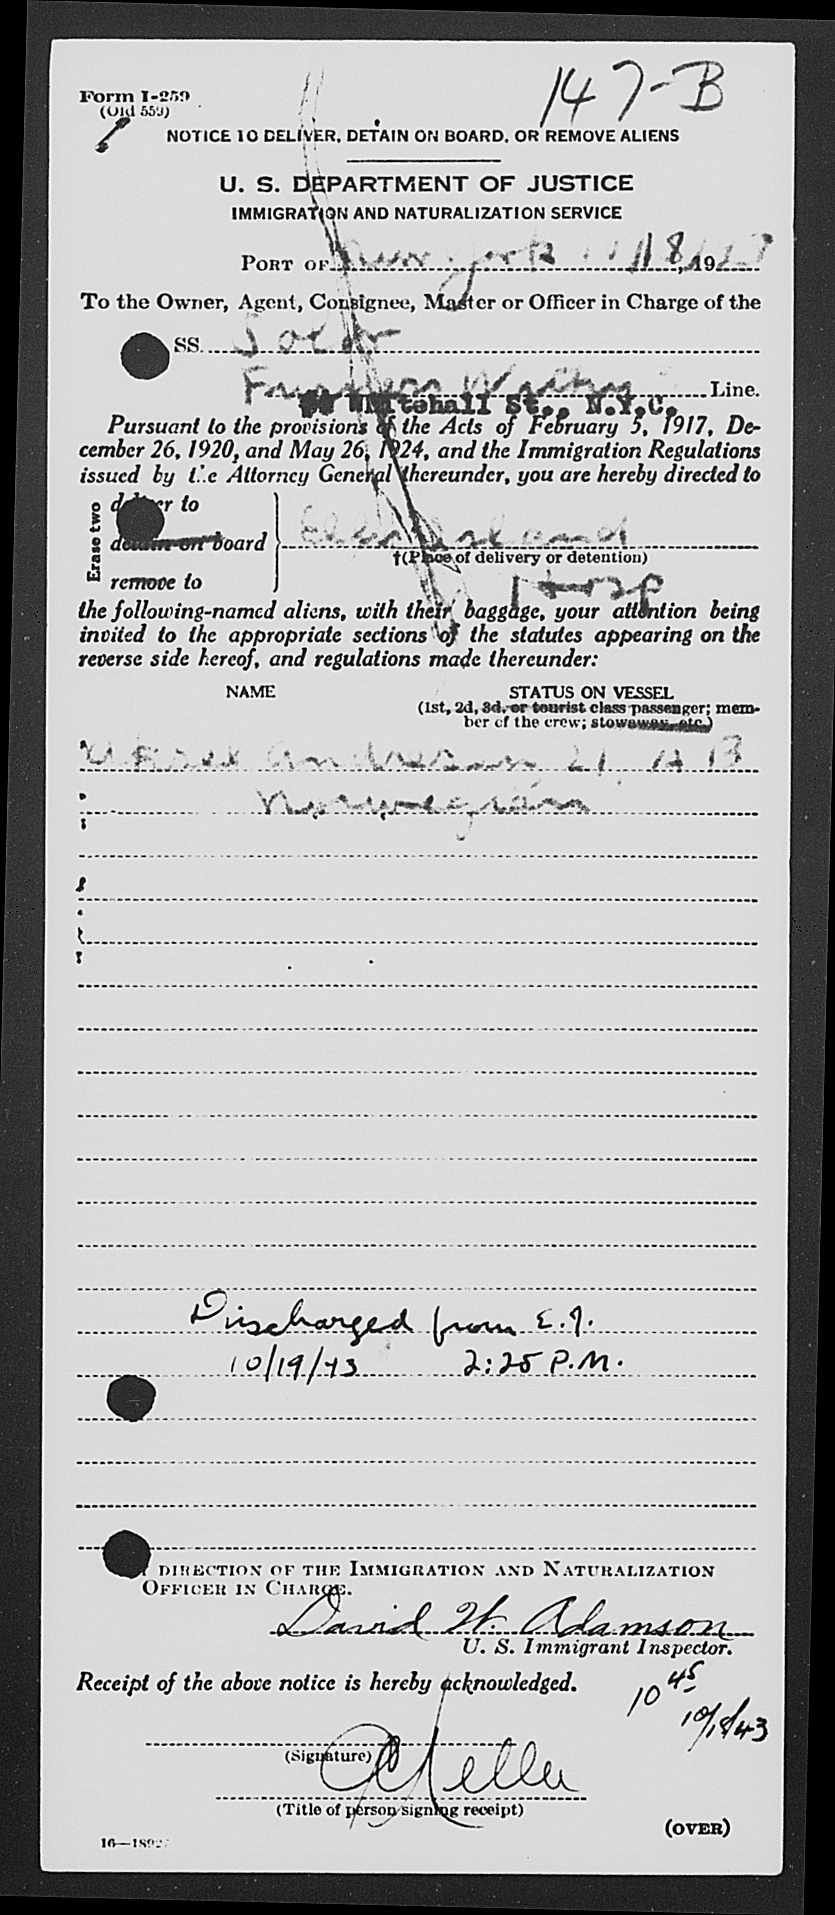 147-B
Form I-259
(Old 559)
NOTICE TO DELIVER, DETAIN ON BOARD, OR REMOVE ALIENS
U. S. DEPARTMENT OF JUSTICE
IMMIGRATION AND NATURALIZATION SERVICE
PORT OF New York 18, 19
To the Owner, Agent, Consignee, Master or Officer in Charge of the
SS.
Line.
Whitehall St., N.Y.C.
Pursuant to the provisions of the Acts of February 5, 1917, De-
cember 26, 1920, and May 26, 1924, and the Immigration Regulations
issued by the Attorney General thereunder, you are hereby directed to
Erase two
deliver to
detain on board
Ellis Island
†(Place of delivery or detention)
remove to
Hosp
the following-named aliens, with their baggage, your attention being
invited to the appropriate sections of the statutes appearing on the
reverse side hereof, and regulations made thereunder:
NAME
STATUS ON VESSEL
(1st, 2d, 3d, or tourist class passenger; mem-
ber of the crew; stowaway, etc.)
Andresen 21
Norwegian
Discharged from E.I.
10/19/43 2:25 P.M.
DIRECTION OF THE IMMIGRATION AND NATURALIZATION
OFFICER IN CHARGE.
David W. Adamson
U. S. Immigrant Inspector.
Receipt of the above notice is hereby acknowledged.
10 45
10/18/43
(Signature)
(Title of person signing receipt)
(OVER)